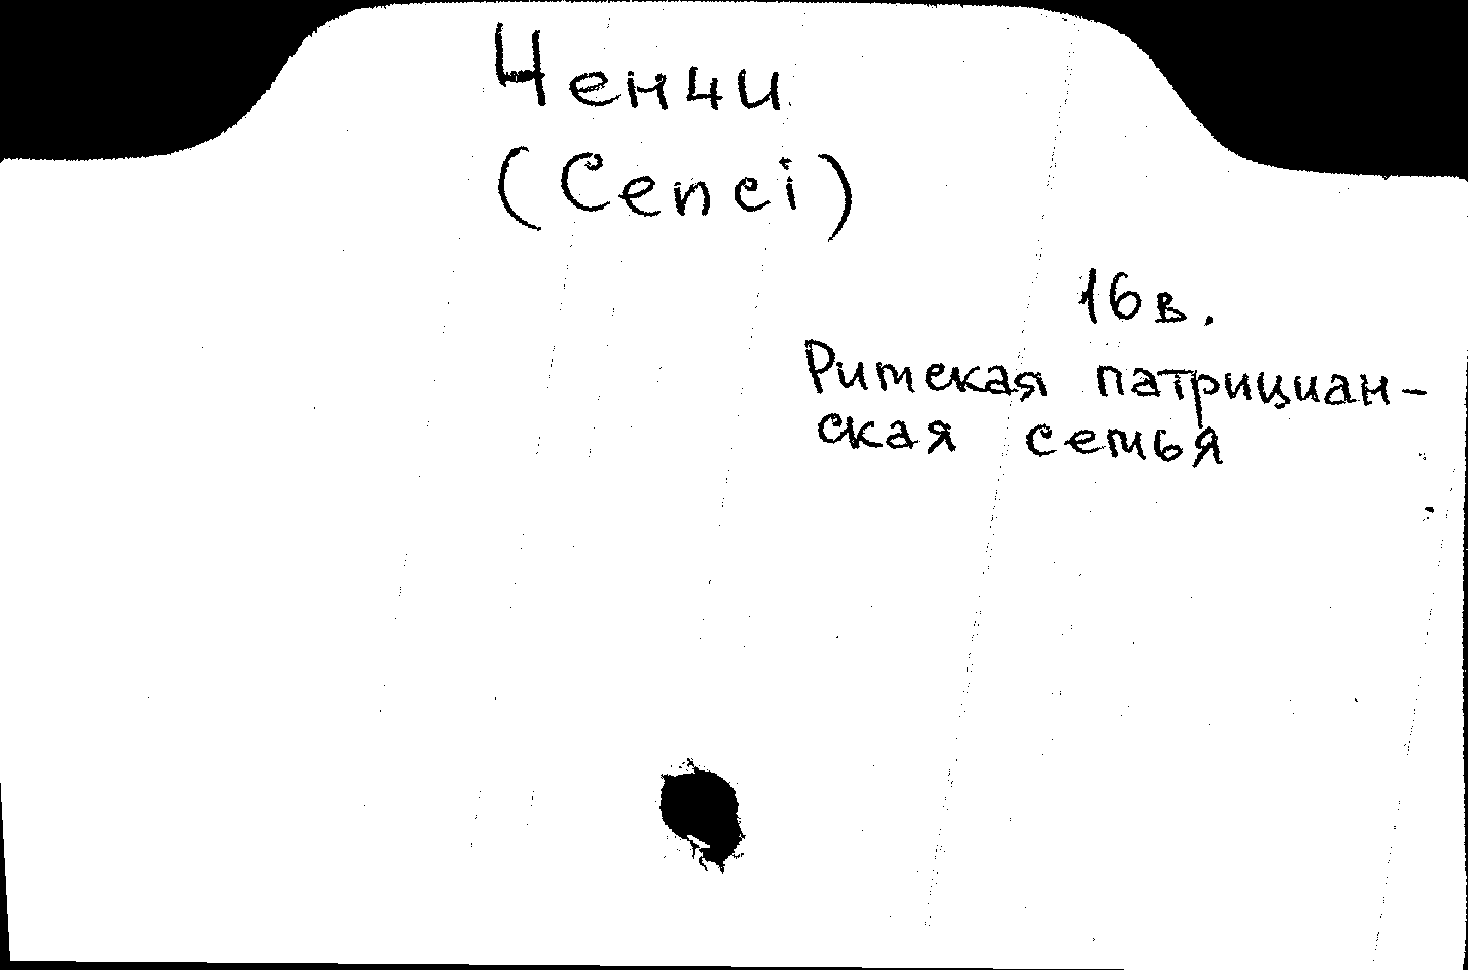 Ченчи
(Cenci)
16 в.
Римская патрициан-
ская семья